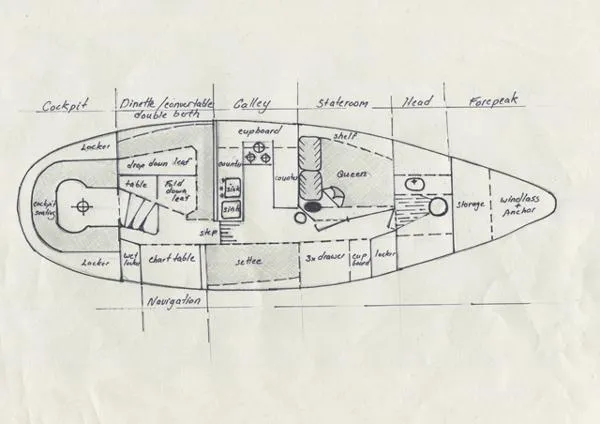 Cockpit
Dinette/convertable
double berth
Galley
Stateroom
Head
Forepeak
Locker
cupboard
shelf
drop down leaf
counter
counter
Queen
table
Fold
down
leaf
sink
sink
cockpit
seating
storage
windlass
+
Anchor
step
Locker
wet
locker
chart table
settee
3x drawer
cup
board
locker
Navigation